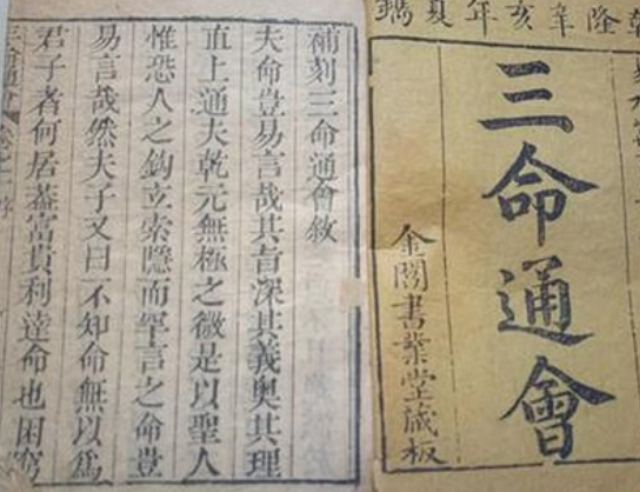 乾隆辛亥年夏鐫
三命通會
金閶書業堂藏板
補刻三命通會敘
夫命豈易言哉其旨深其義奧其理
直上通夫乾元無極之微是以聖人
惟恐人之鈎立索隱而罕言之命豈
易言哉然夫子又曰不知命無以爲
君子者何居蓋富貴利達命也困窮
三命通會